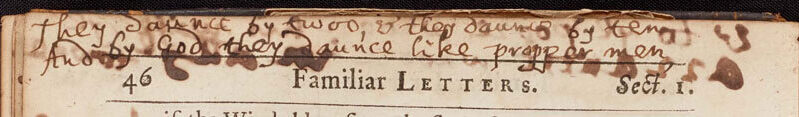 They daunce by twoo, & they daunce by ten,
And by God they daunce like propper men,
46 Familiar LETTERS. Sect. 1.